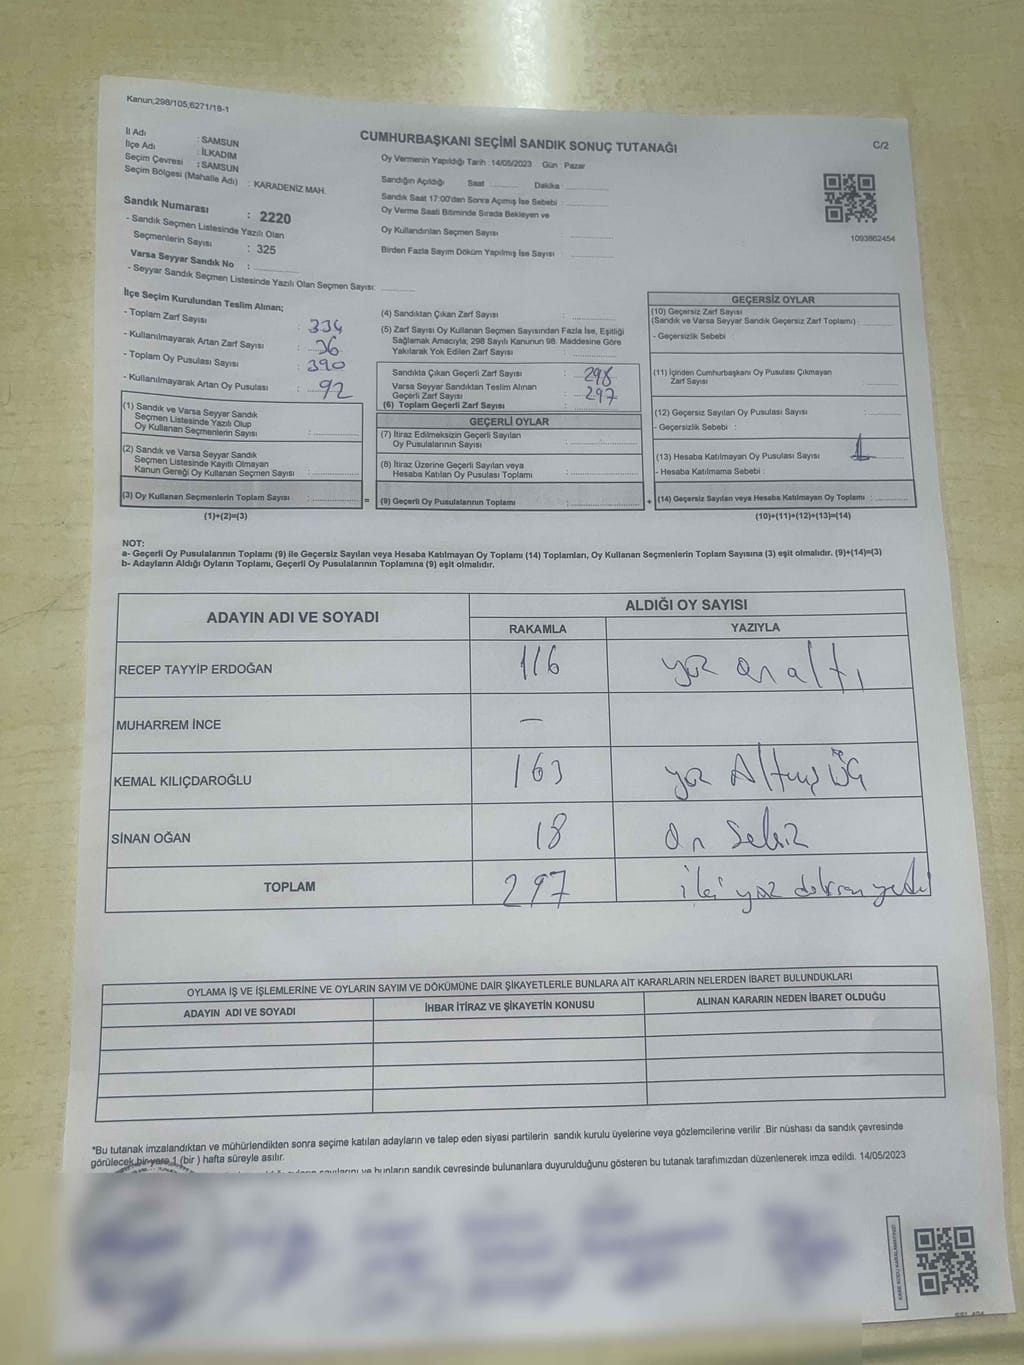 Kanun;298/105;6271/18-1
CUMHURBAŞKANI SEÇİMİ SANDIK SONUÇ TUTANAĞI
C/2
İl Adı : SAMSUN
İlçe Adı : İLKADIM
Seçim Çevresi : SAMSUN
Seçim Bölgesi (Mahalle Adı) : KARADENİZ MAH.
Sandık Numarası : 2220
- Sandık Seçmen Listesinde Yazılı Olan
Seçmenlerin Sayısı : 325
Varsa Seyyar Sandık No :
- Seyyar Sandık Seçmen Listesinde Yazılı Olan Seçmen Sayısı:
Oy Vermenin Yapıldığı Tarih : 14/05/2023 Gün : Pazar
Sandığın Açıldığı Saat Dakika :
Sandık Saat 17:00'den Sonra Açımış İse Sebebi :
Oy Verme Saati Bitiminde Sırada Bekleyen ve
Oy Kullandırılan Seçmen Sayısı :
Birden Fazla Sayım Döküm Yapılmış İse Sayısı :
1093862454
İlçe Seçim Kurulundan Teslim Alınan;
- Toplam Zarf Sayısı : 334
- Kullanılmayarak Artan Zarf Sayısı : 36
- Toplam Oy Pusulası Sayısı : 390
- Kullanılmayarak Artan Oy Pusulası : 92
(1) Sandık ve Varsa Seyyar Sandık
Seçmen Listesinde Yazılı Olup
Oy Kullanan Seçmenlerin Sayısı :
(2) Sandık ve Varsa Seyyar Sandık
Seçmen Listesinde Kayıtlı Olmayan
Kanun Gereği Oy Kullanan Seçmen Sayısı :
(3) Oy Kullanan Seçmenlerin Toplam Sayısı : =
(1)+(2)=(3)
(4) Sandıktan Çıkan Zarf Sayısı :
(5) Zarf Sayısı Oy Kullanan Seçmen Sayısından Fazla İse, Eşitliği
Sağlamak Amacıyla; 298 Sayılı Kanunun 98. Maddesine Göre
Yakılarak Yok Edilen Zarf Sayısı :
Sandıkta Çıkan Geçerli Zarf Sayısı : 298
Varsa Seyyar Sandıktan Teslim Alınan
Geçerli Zarf Sayısı : 297
(6) Toplam Geçerli Zarf Sayısı :
GEÇERLİ OYLAR
(7) İtiraz Edilmeksizin Geçerli Sayılan
Oy Pusulalarının Sayısı :
(8) İtiraz Üzerine Geçerli Sayılan veya
Hesaba Katılan Oy Pusulası Toplamı :
(9) Geçerli Oy Pusulalarının Toplamı : +
GEÇERSİZ OYLAR
(10) Geçersiz Zarf Sayısı
(Sandık ve Varsa Seyyar Sandık Geçersiz Zarf Toplamı) :
- Geçersizlik Sebebi :
(11) İçinden Cumhurbaşkanı Oy Pusulası Çıkmayan
Zarf Sayısı :
(12) Geçersiz Sayılan Oy Pusulası Sayısı :
- Geçersizlik Sebebi :
(13) Hesaba Katılmayan Oy Pusulası Sayısı : 1
- Hesaba Katılmama Sebebi :
(14) Geçersiz Sayılan veya Hesaba Katılmayan Oy Toplamı :
(10)+(11)+(12)+(13)=(14)
NOT:
a- Geçerli Oy Pusulalarının Toplamı (9) ile Geçersiz Sayılan veya Hesaba Katılmayan Oy Toplamı (14) Toplamları, Oy Kullanan Seçmenlerin Toplam Sayısına (3) eşit olmalıdır. (9)+(14)=(3)
b- Adayların Aldığı Oyların Toplamı, Geçerli Oy Pusulalarının Toplamına (9) eşit olmalıdır.
ADAYIN ADI VE SOYADI
ALDIĞI OY SAYISI
RAKAMLA YAZIYLA
RECEP TAYYİP ERDOĞAN 116 yüz on altı
MUHARREM İNCE —
KEMAL KILIÇDAROĞLU 163 yüz Altmış üç
SİNAN OĞAN 18 On Sekiz
TOPLAM 297 iki yüz doksan yedi
OYLAMA İŞ VE İŞLEMLERİNE VE OYLARIN SAYIM VE DÖKÜMÜNE DAİR ŞİKAYETLERLE BUNLARA AİT KARARLARIN NELERDEN İBARET BULUNDUKLARI
ADAYIN ADI VE SOYADI İHBAR İTİRAZ VE ŞİKAYETİN KONUSU ALINAN KARARIN NEDEN İBARET OLDUĞU
"Bu tutanak imzalandıktan ve mühürlendikten sonra seçime katılan adayların ve talep eden siyasi partilerin sandık kurulu üyelerine veya gözlemcilerine verilir .Bir nüshası da sandık çevresinde
görülecek bir yere 1 (bir ) hafta süreyle asılır.
ve bunların sandık çevresinde bulunanlara duyurulduğunu gösteren bu tutanak tarafımızdan düzenlenerek imza edildi. 14/05/2023